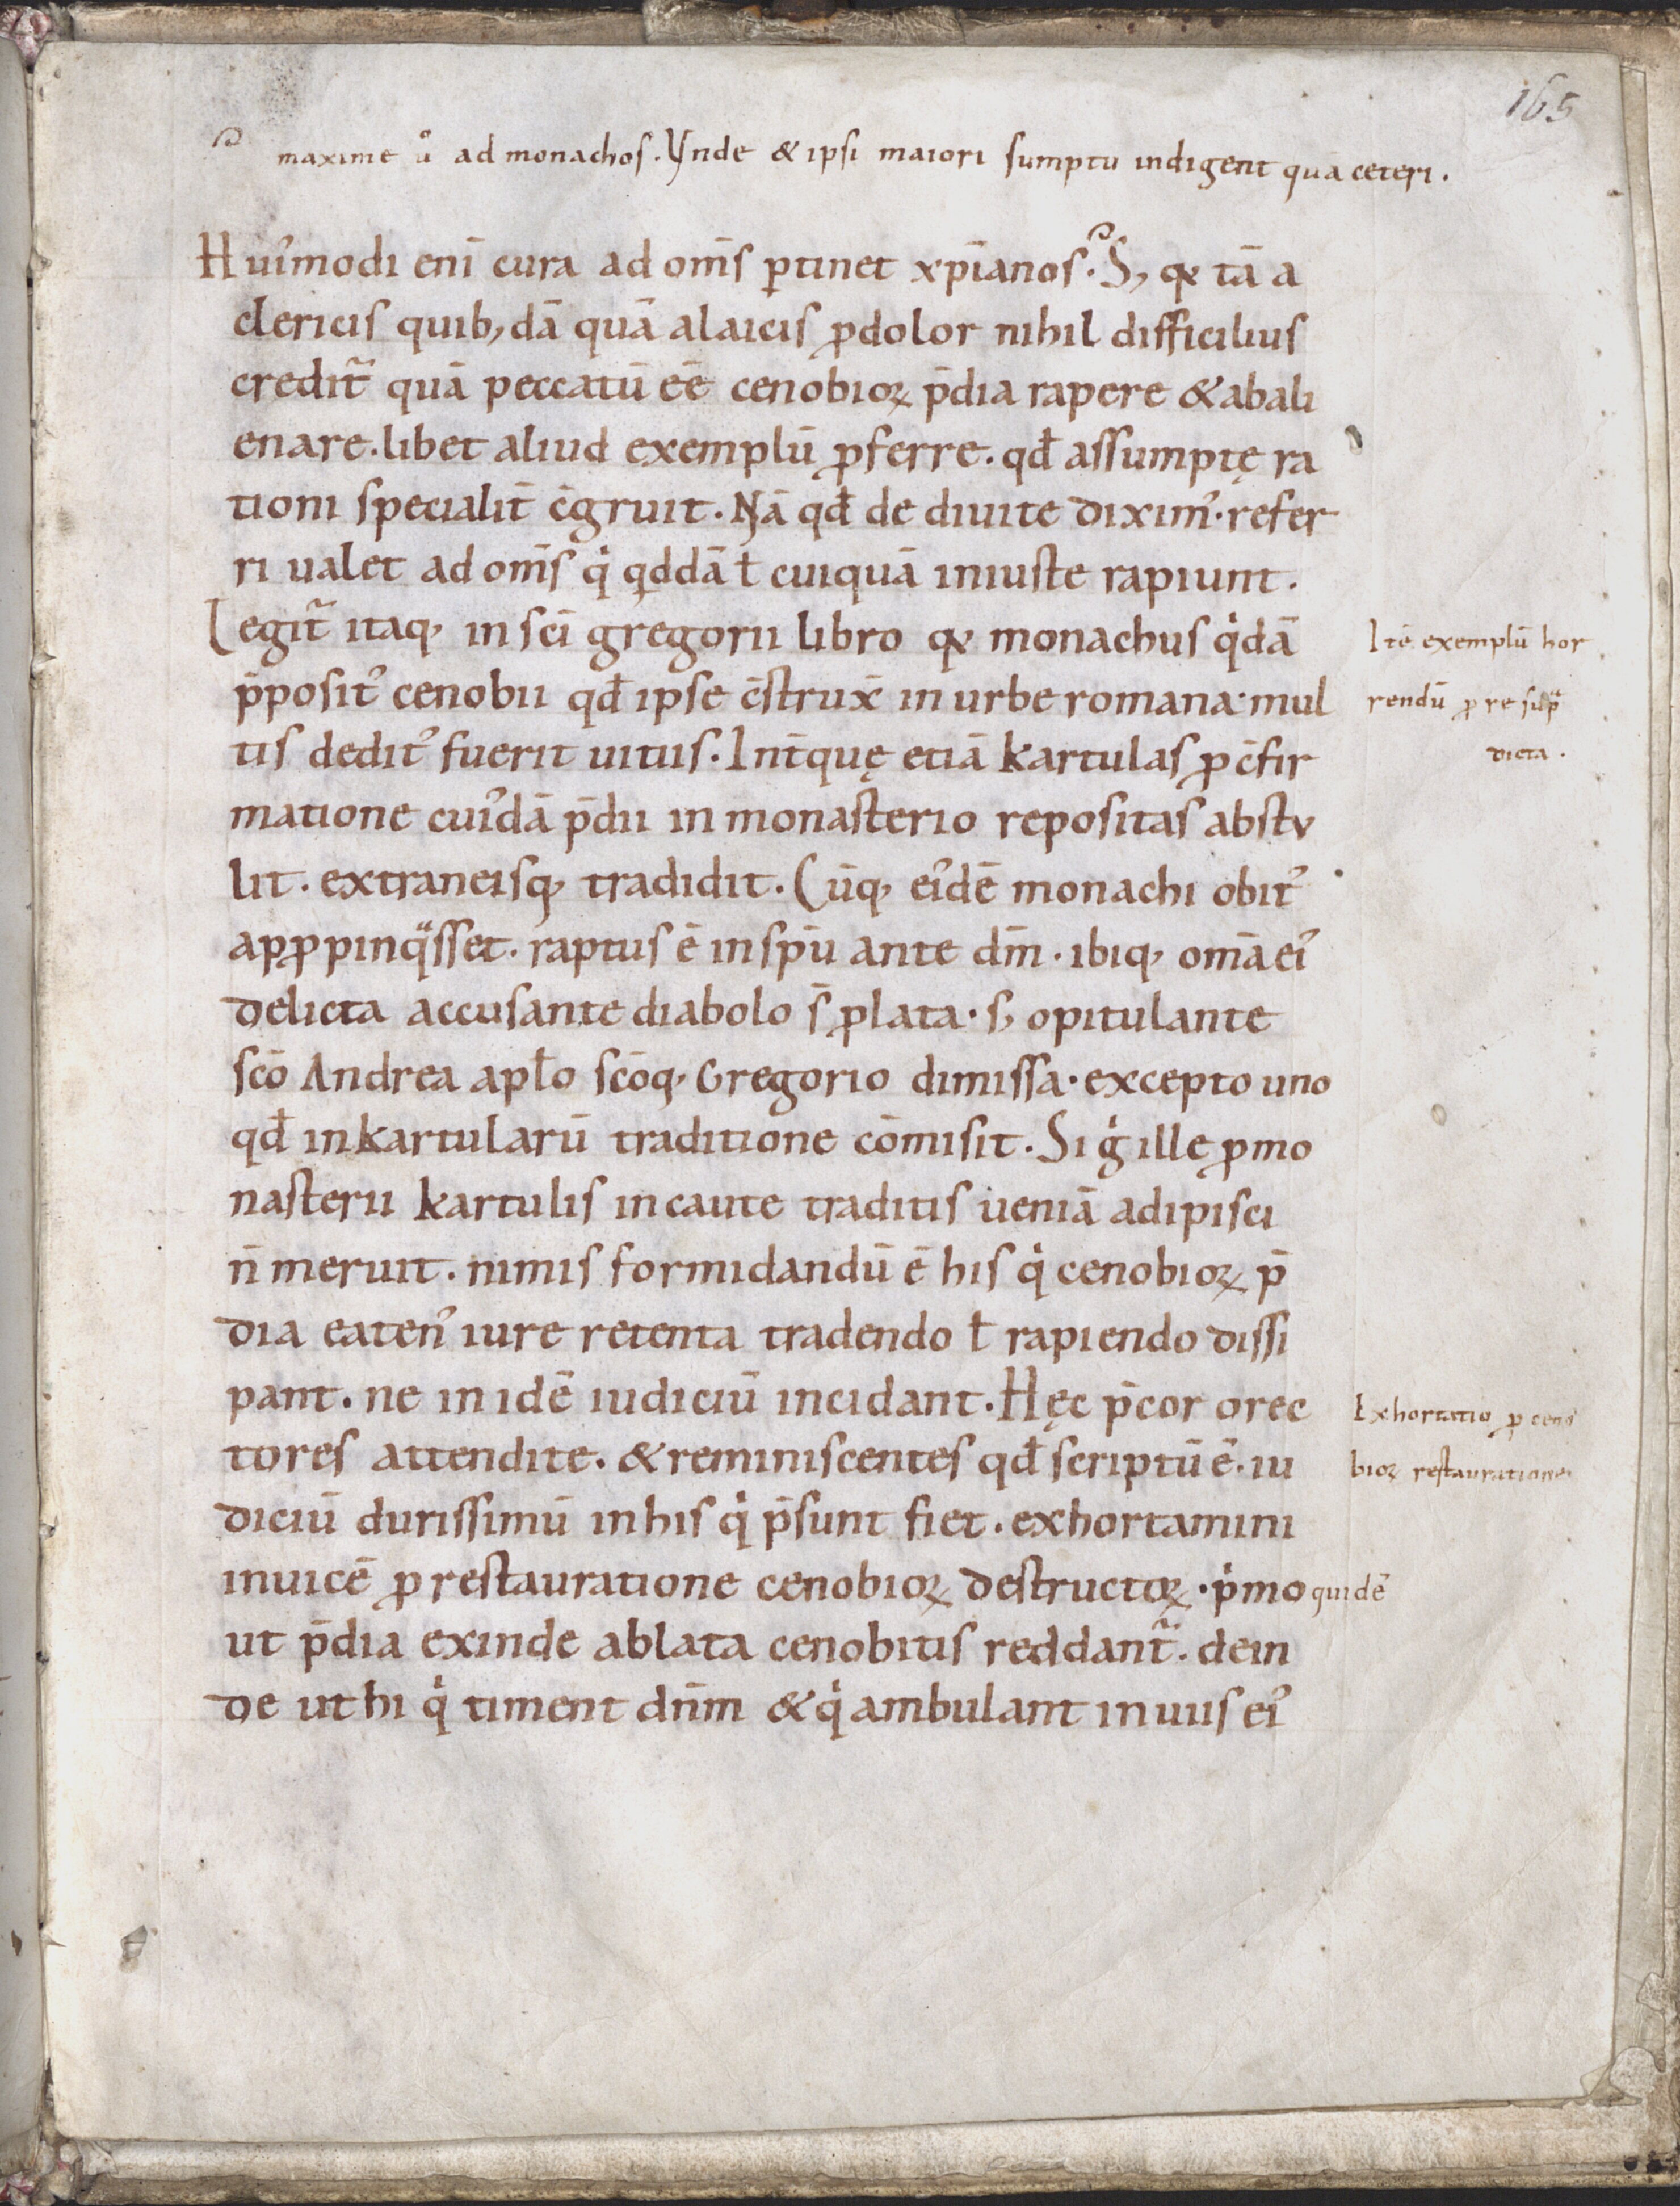 165
maxime ů ad monachos. Vnde & ipsi maiori sumptu indigent quā ceteri.
Hui᾽modi enī cura ad om̄s ꝑtinet xp̄ianos. S; qꝫ tā a
clericis quib;dā quā alaicis ꝓdolor nihil difficilius
credit᷑ quā peccatū eē cenobioꝝ p̄dia rapere & abali
enare. libet aliud exemplū ꝓferre. qđ assumptę ra
tioni specialit̄ c̄gruit. Nā qđ de diuite dixim᾽. refer
ri ualet ad om̄s qͥ qͥddā ł cuiquā iniuste rapiunt.
Legit᷑ itaq; in sc̄i gregorii libro qꝫ monachus qͥdā
p̄posit᾽ cenobii qđ ipse c̄strux̄ in urbe romana. mul
tis dedit᾽ fuerit uitiis. Int̄quę etiā kartulas ꝓ c̄fir
matione cui᾽dā p̄dii in monasterio repositas abstu
lit. extraneisq; tradidit. Cūq; ei᾽dē monachi obit᾽
apꝓpinqͣsset. raptus ē in sp̄u ante dm̄. ibiq; om̄a ei᾽
delicta accusante diabolo s̄ ꝓlata. s; opitulante
sc̄o Andrea apl̄o sc̄oq; Gregorio dimissa. excepto uno
qđ in kartularū traditione cōmisit. Si gͥ ille ꝓ mo
nasterii kartulis incaute traditis ueniā adipisci
n̄ meruit. nimis formidandū ē his qͥ cenobioꝝ p̄
dia eaten᾽ iure retenta tradendo ł rapiendo dissi
pant. ne in idē iudiciū incidant. Hęc p̄cor o rec
tores attendite. & reminiscentes qđ scriptū ē. iu
diciū durissimū in his qͥ p̄sunt fiet. exhortamini
inuicē ꝓ restauratione cenobioꝝ destructoꝝ. pͥmo quidē
ut p̄dia exinde ablata cenobitis reddant᷑. dein
de ut hi qͥ timent dn̄m & qͥ ambulant in uiis ei᾽
Itē exemplū hor
rendū ꝓ re supͣ
dicta.
Exhortatio ꝓ ceno
bioꝝ restauratione